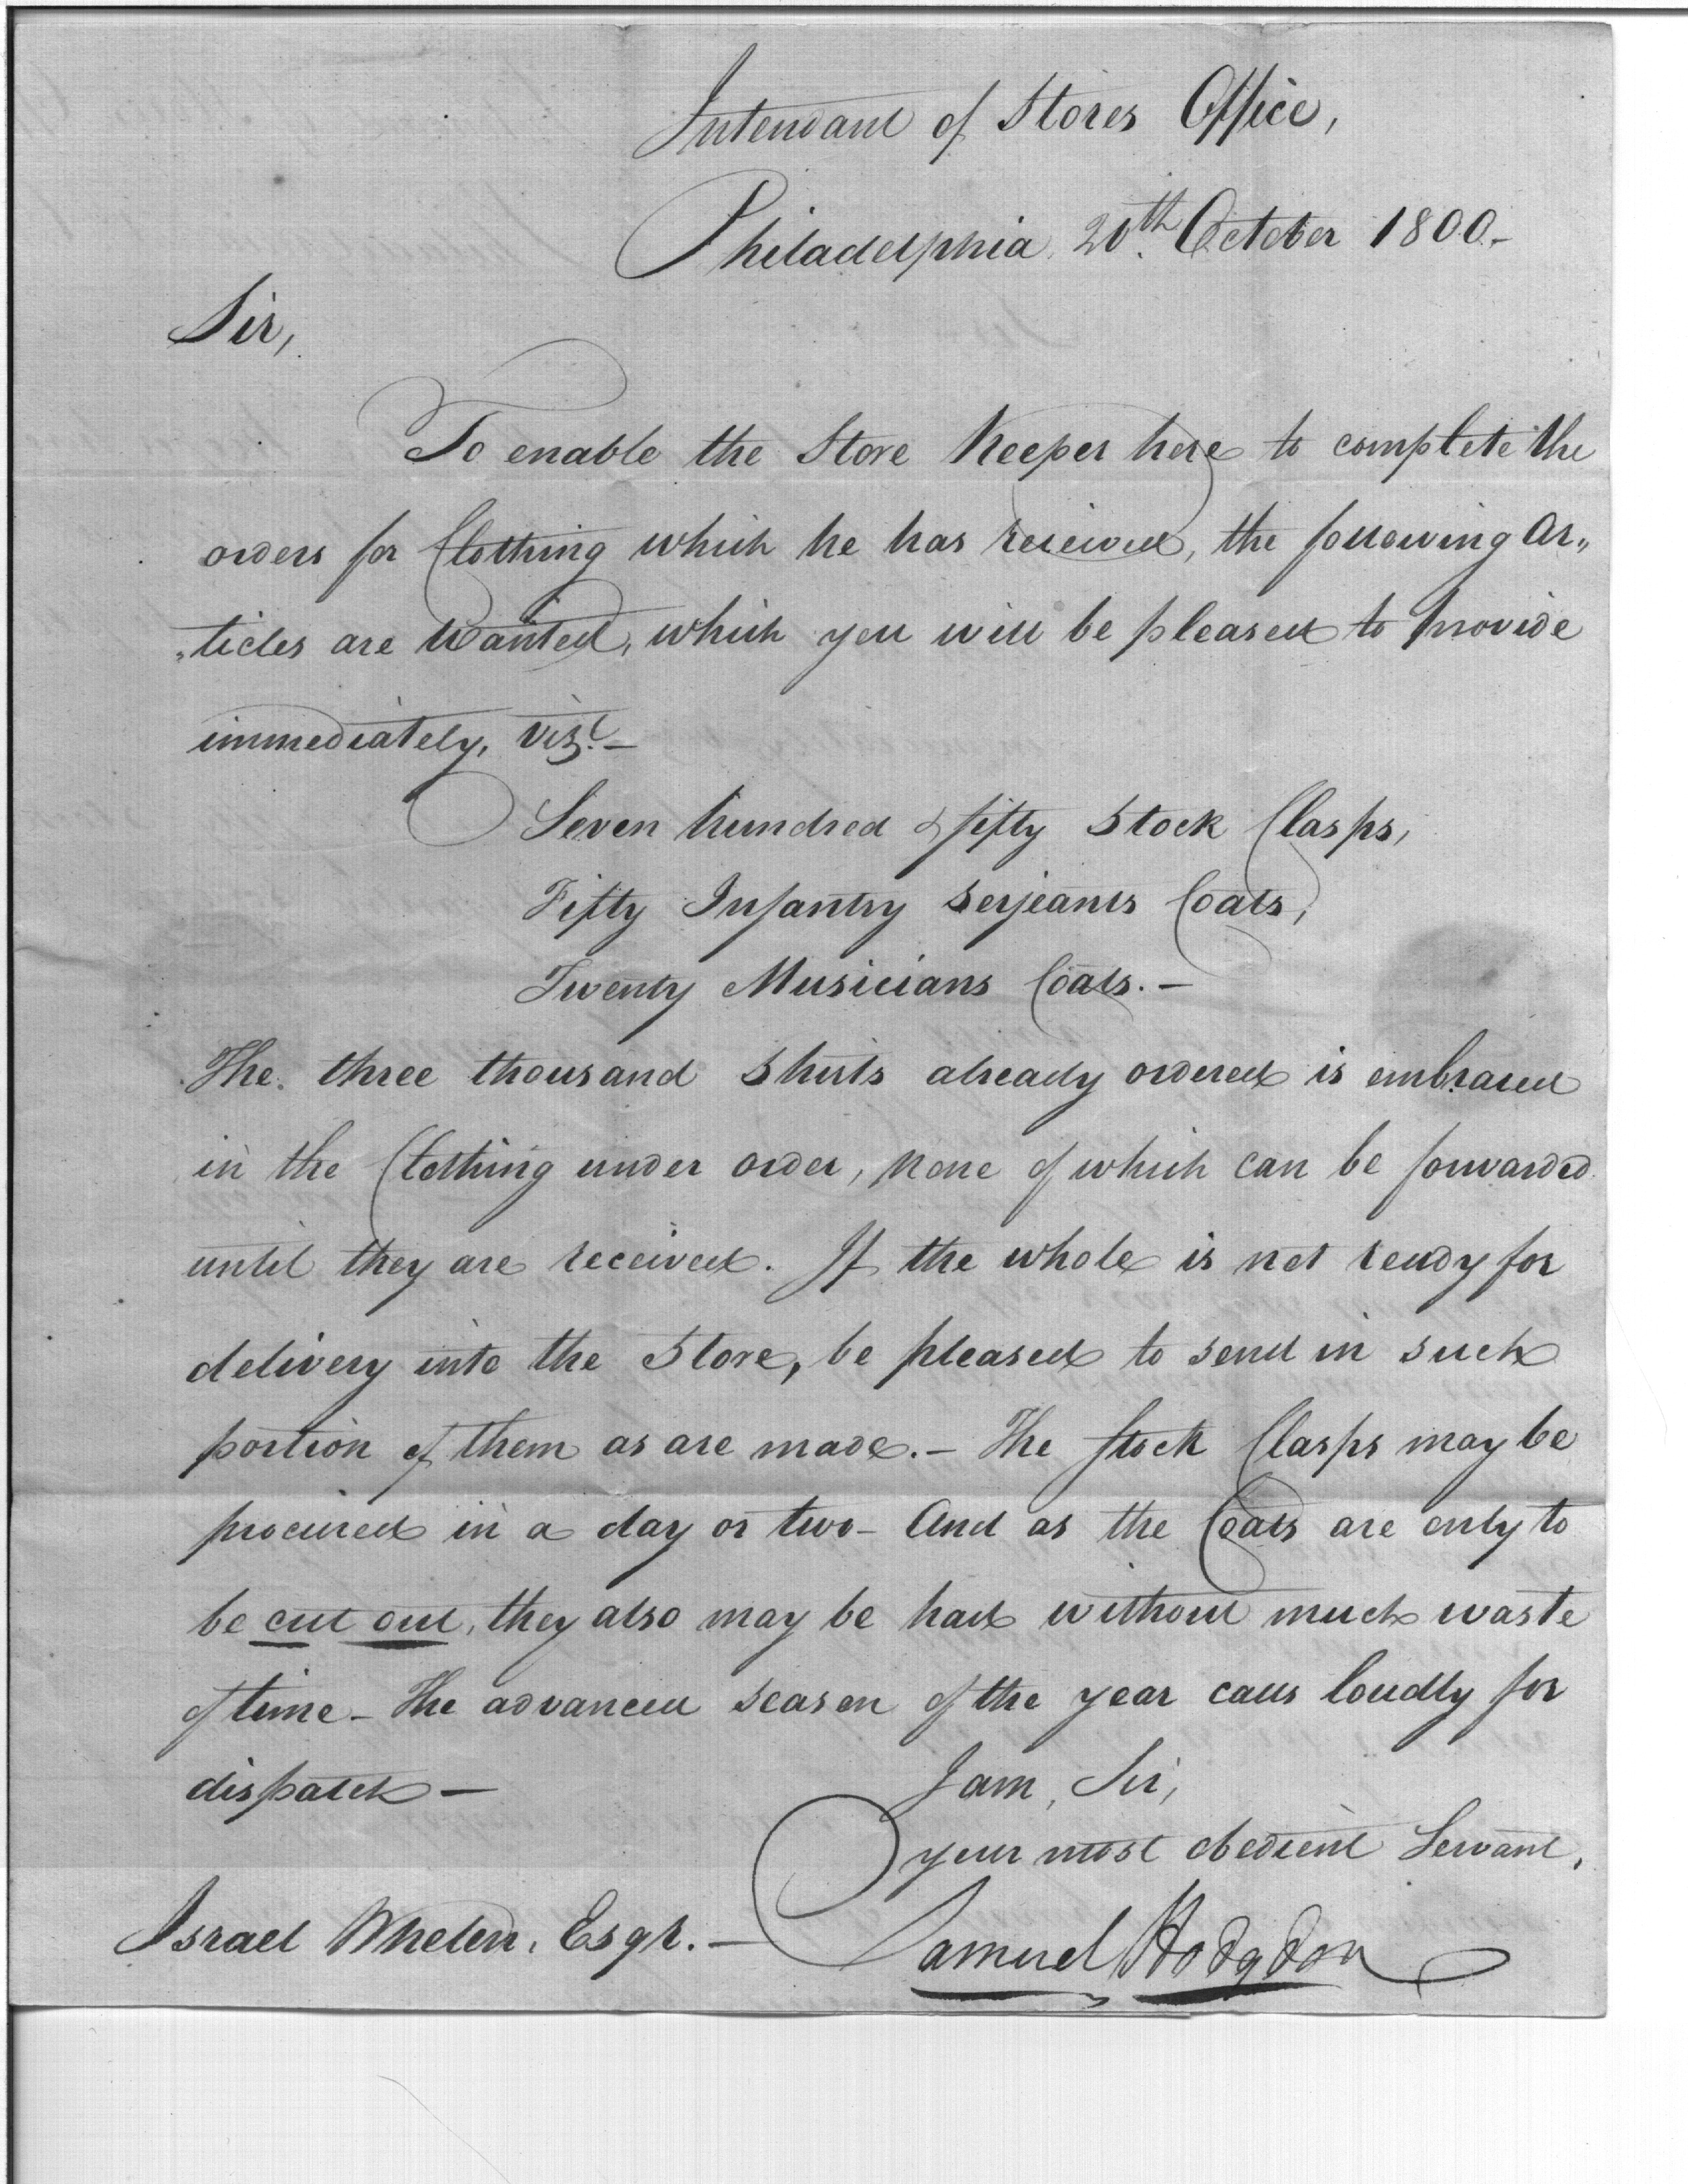 Intendant of Stores Office,
Philadelphia, 20th. October 1800.-
Sir,
To enable the Store Keeper here to complete the
orders for Clothing which he has received, the following Ar„
„ticles are Wanted, which you will be pleased to provide
immediately, vizt.—
Seven hundred & fifty Stock Clasps,
Fifty Infantry Serjeants Coats,
Twenty Musicians Coats.—
The three thousand Shirts already ordered is embraced
in the Clothing under order, none of which can be forwarded
until they are received. If the whole is not ready for
delivery into the Store, be pleased to send in such
portion of them as are made.— The Stock Clasps may be
procured in a day or two— And as the Coats are only to
be cut out, they also may be had without much waste
of time— The advanced season of the year calls loudly for
dispatch—
I am, Sir,
your most obedient Servant,
Israel Whelen, Esqr.—
Samuel Hodgdon